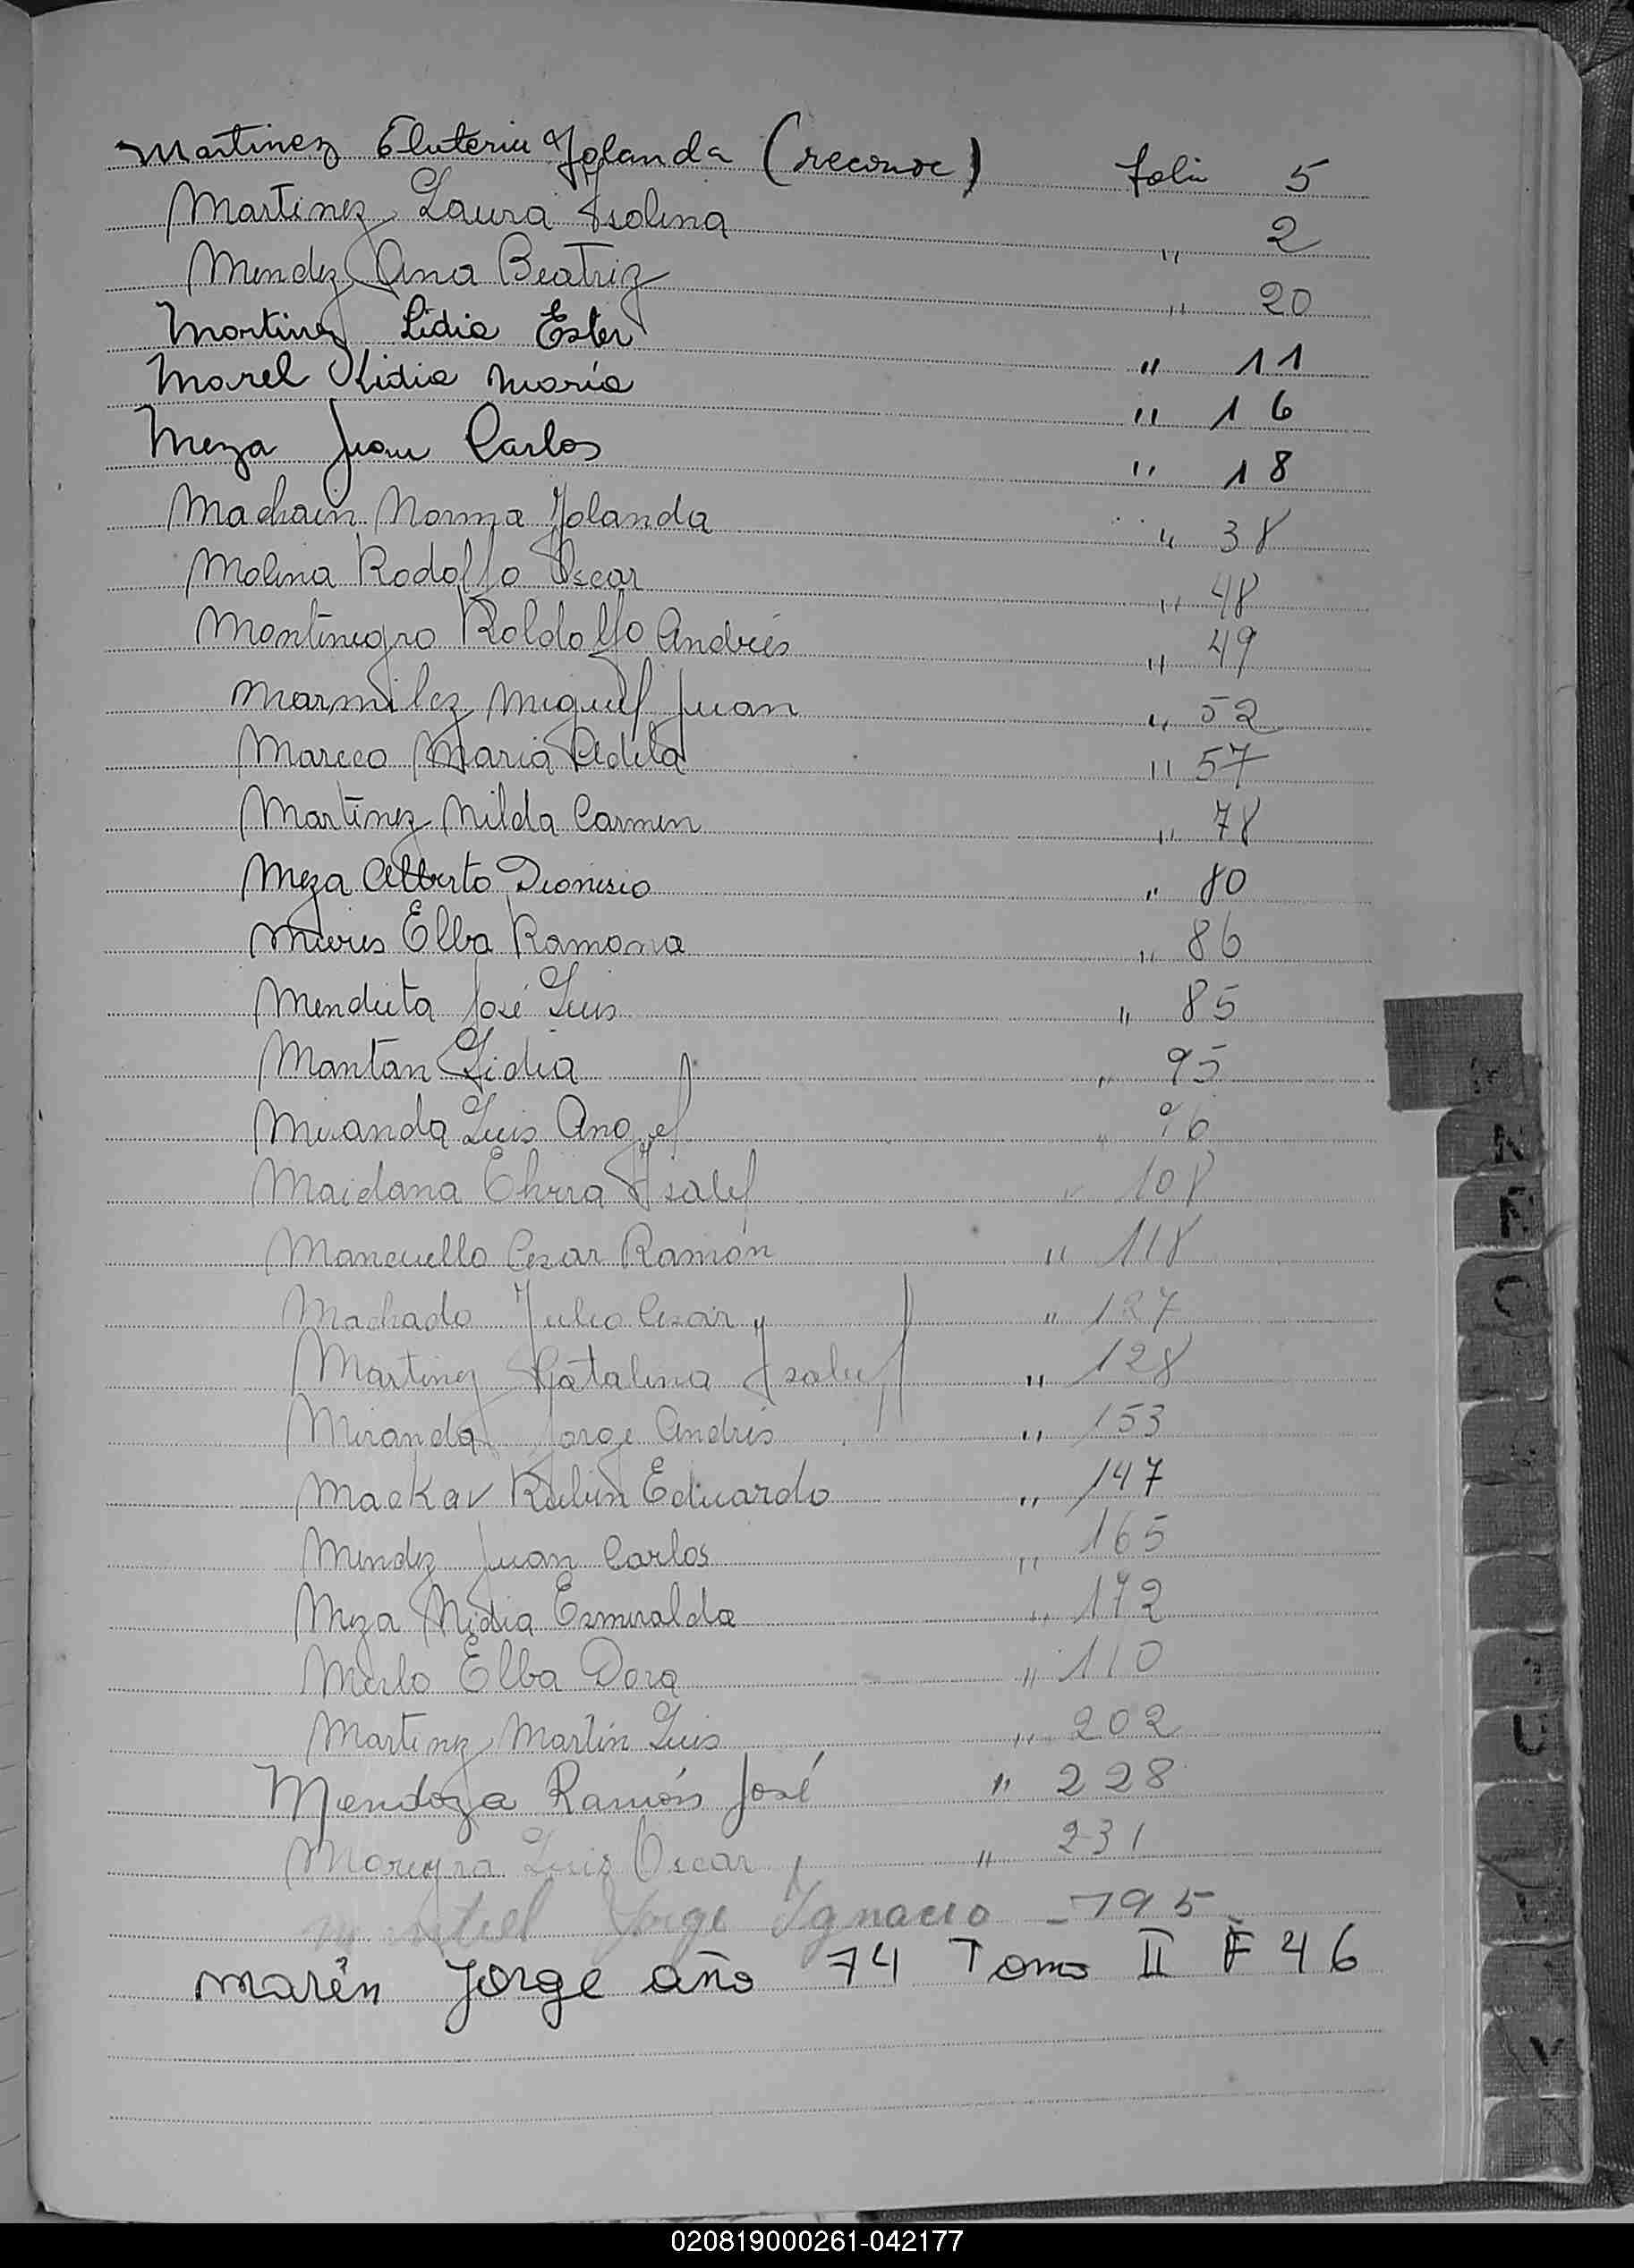 Martinez Eluteria Yolanda (reconoc) folio 5
Martinez Laura Isolina " 2
Mendez Ana Beatriz " 20
Martinez Lidia Ester " 11
Morel Lidia María " 16
Meza Juan Carlos " 18
Machain Norma Yolanda " 38
Molina Rodolfo Oscar " 48
Montenegro Roldolfo Andrés " 49
Miguel Juan " 52
Marcco Maria Adela " 57
Martinez Nilda Carmen " 78
Meza Alberto Dionisio " 80
Mieres Elba Ramona " 86
Mendieta José Luis " 85
Mantan Lidia " 95
Miranda Luis Angel " 96
Maidana Isabel " 108
Mancuello Cesar Ramón " 118
Machado Julio Cesar y " 127
Martinez Catalina Isabel " 128
Miranda Jorge Andrés " 153
MacKay Rubén Eduardo " 147
Mendez Juan Carlos " 165
Meza Nidia Esmeralda " 172
Merlo Elba Dora "
Martinez Martín Luis " 202
Mendoza Ramón José " 228
Luis Oscar " 231
Jorge Ignacio - 195
Marên Jorge año 74 Tomo II F 46
N
C
U
V
020819000261-042177